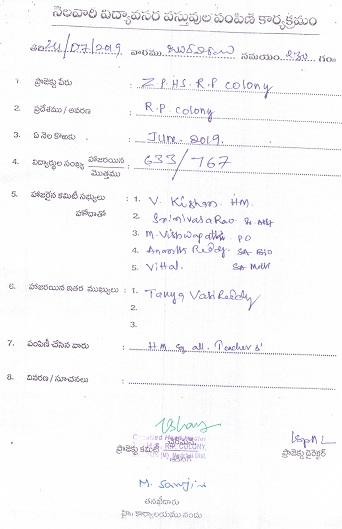 నెలవారి విద్యావసర వస్తువుల పంపిణి కార్యక్రమం
తేది 24/07/2019 వారము బుధవారం సమయం గం॥
1. ప్రాజెక్టు పేరు : Z.P.HS. R.P colony
2. ప్రదేశము / ఆవరణ : R.P. colony
3. ఏ నెల కొఱకు : June. 2019.
4. విద్యార్థుల సంఖ్య హాజరయిన / మొత్తము : 633/767
5. హాజరైన కమిటీ సభ్యులు హోదాతో : 1. V. Kishan. HM.
2. Srinivasa Rao.
3. M. Vishwapathi PO
4. Ananth Reddy. SA Bio
5. Vittal. SA Math
6. హాజరయిన ఇతర ముఖ్యులు : 1. Tanya VasiReddy
2.
3.
7. పంపిణీ చేసిన వారు : HM all. Teachers'
8. వివరణ / సూచనలు :
Head Master
R.P. COLONY,
ప్రాజెక్టు కమిటీ
ప్రాజెక్టు డైరెక్టర్
M.
తనిఖీదారు
హై. కార్యాలయము నందు